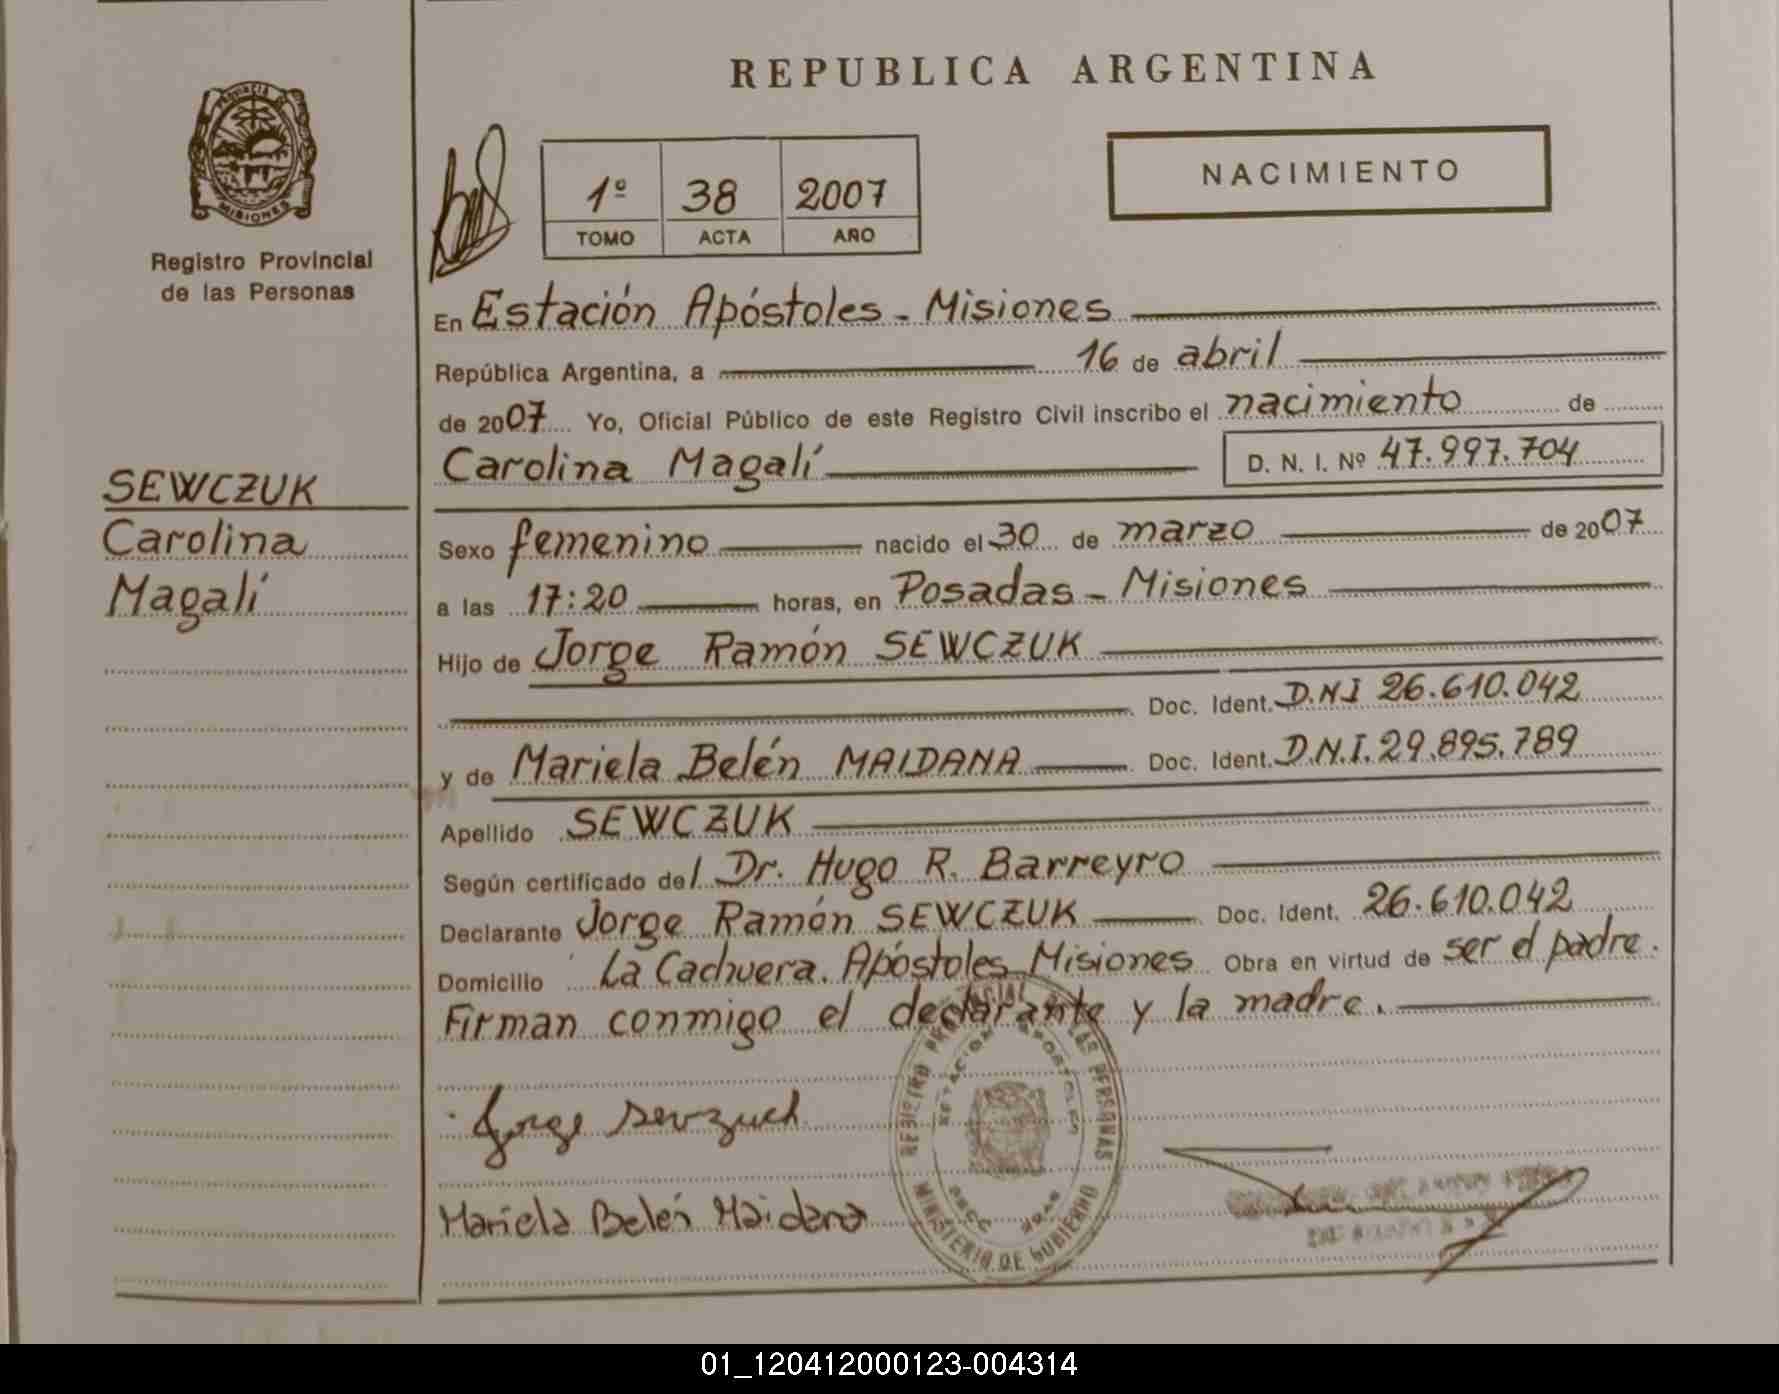 REPUBLICA ARGENTINA
PROVINCIA DE
MISIONES
Registro Provincial
de las Personas
1º 38 2007
TOMO ACTA AÑO
NACIMIENTO
En Estación Apóstoles - Misiones
República Argentina, a 16 de abril
de 2007 Yo, Oficial Público de este Registro Civil inscribo el nacimiento de
Carolina Magalí D. N. I. Nº 47.997.704
SEWCZUK
Carolina
Magalí
Sexo femenino nacido el 30 de marzo de 2007
a las 17:20 horas, en Posadas - Misiones
Hijo de Jorge Ramón SEWCZUK
Doc. Ident. D.N.I 26.610.042
y de Mariela Belén MAIDANA Doc. Ident. D.N.I. 29.895.789
Apellido SEWCZUK
Según certificado del Dr. Hugo R. Barreyro
Declarante Jorge Ramón SEWCZUK Doc. Ident. 26.610.042
Domicilio La Cachuera. Apóstoles Misiones Obra en virtud de ser el padre.
Firman conmigo el declarante y la madre.
REGISTRO PROVINCIAL DE LAS PERSONAS
ESTACION APOSTOLES
MINISTERIO DE GOBIERNO
Jorge
Mariela Belén Maidana
01_120412000123-004314